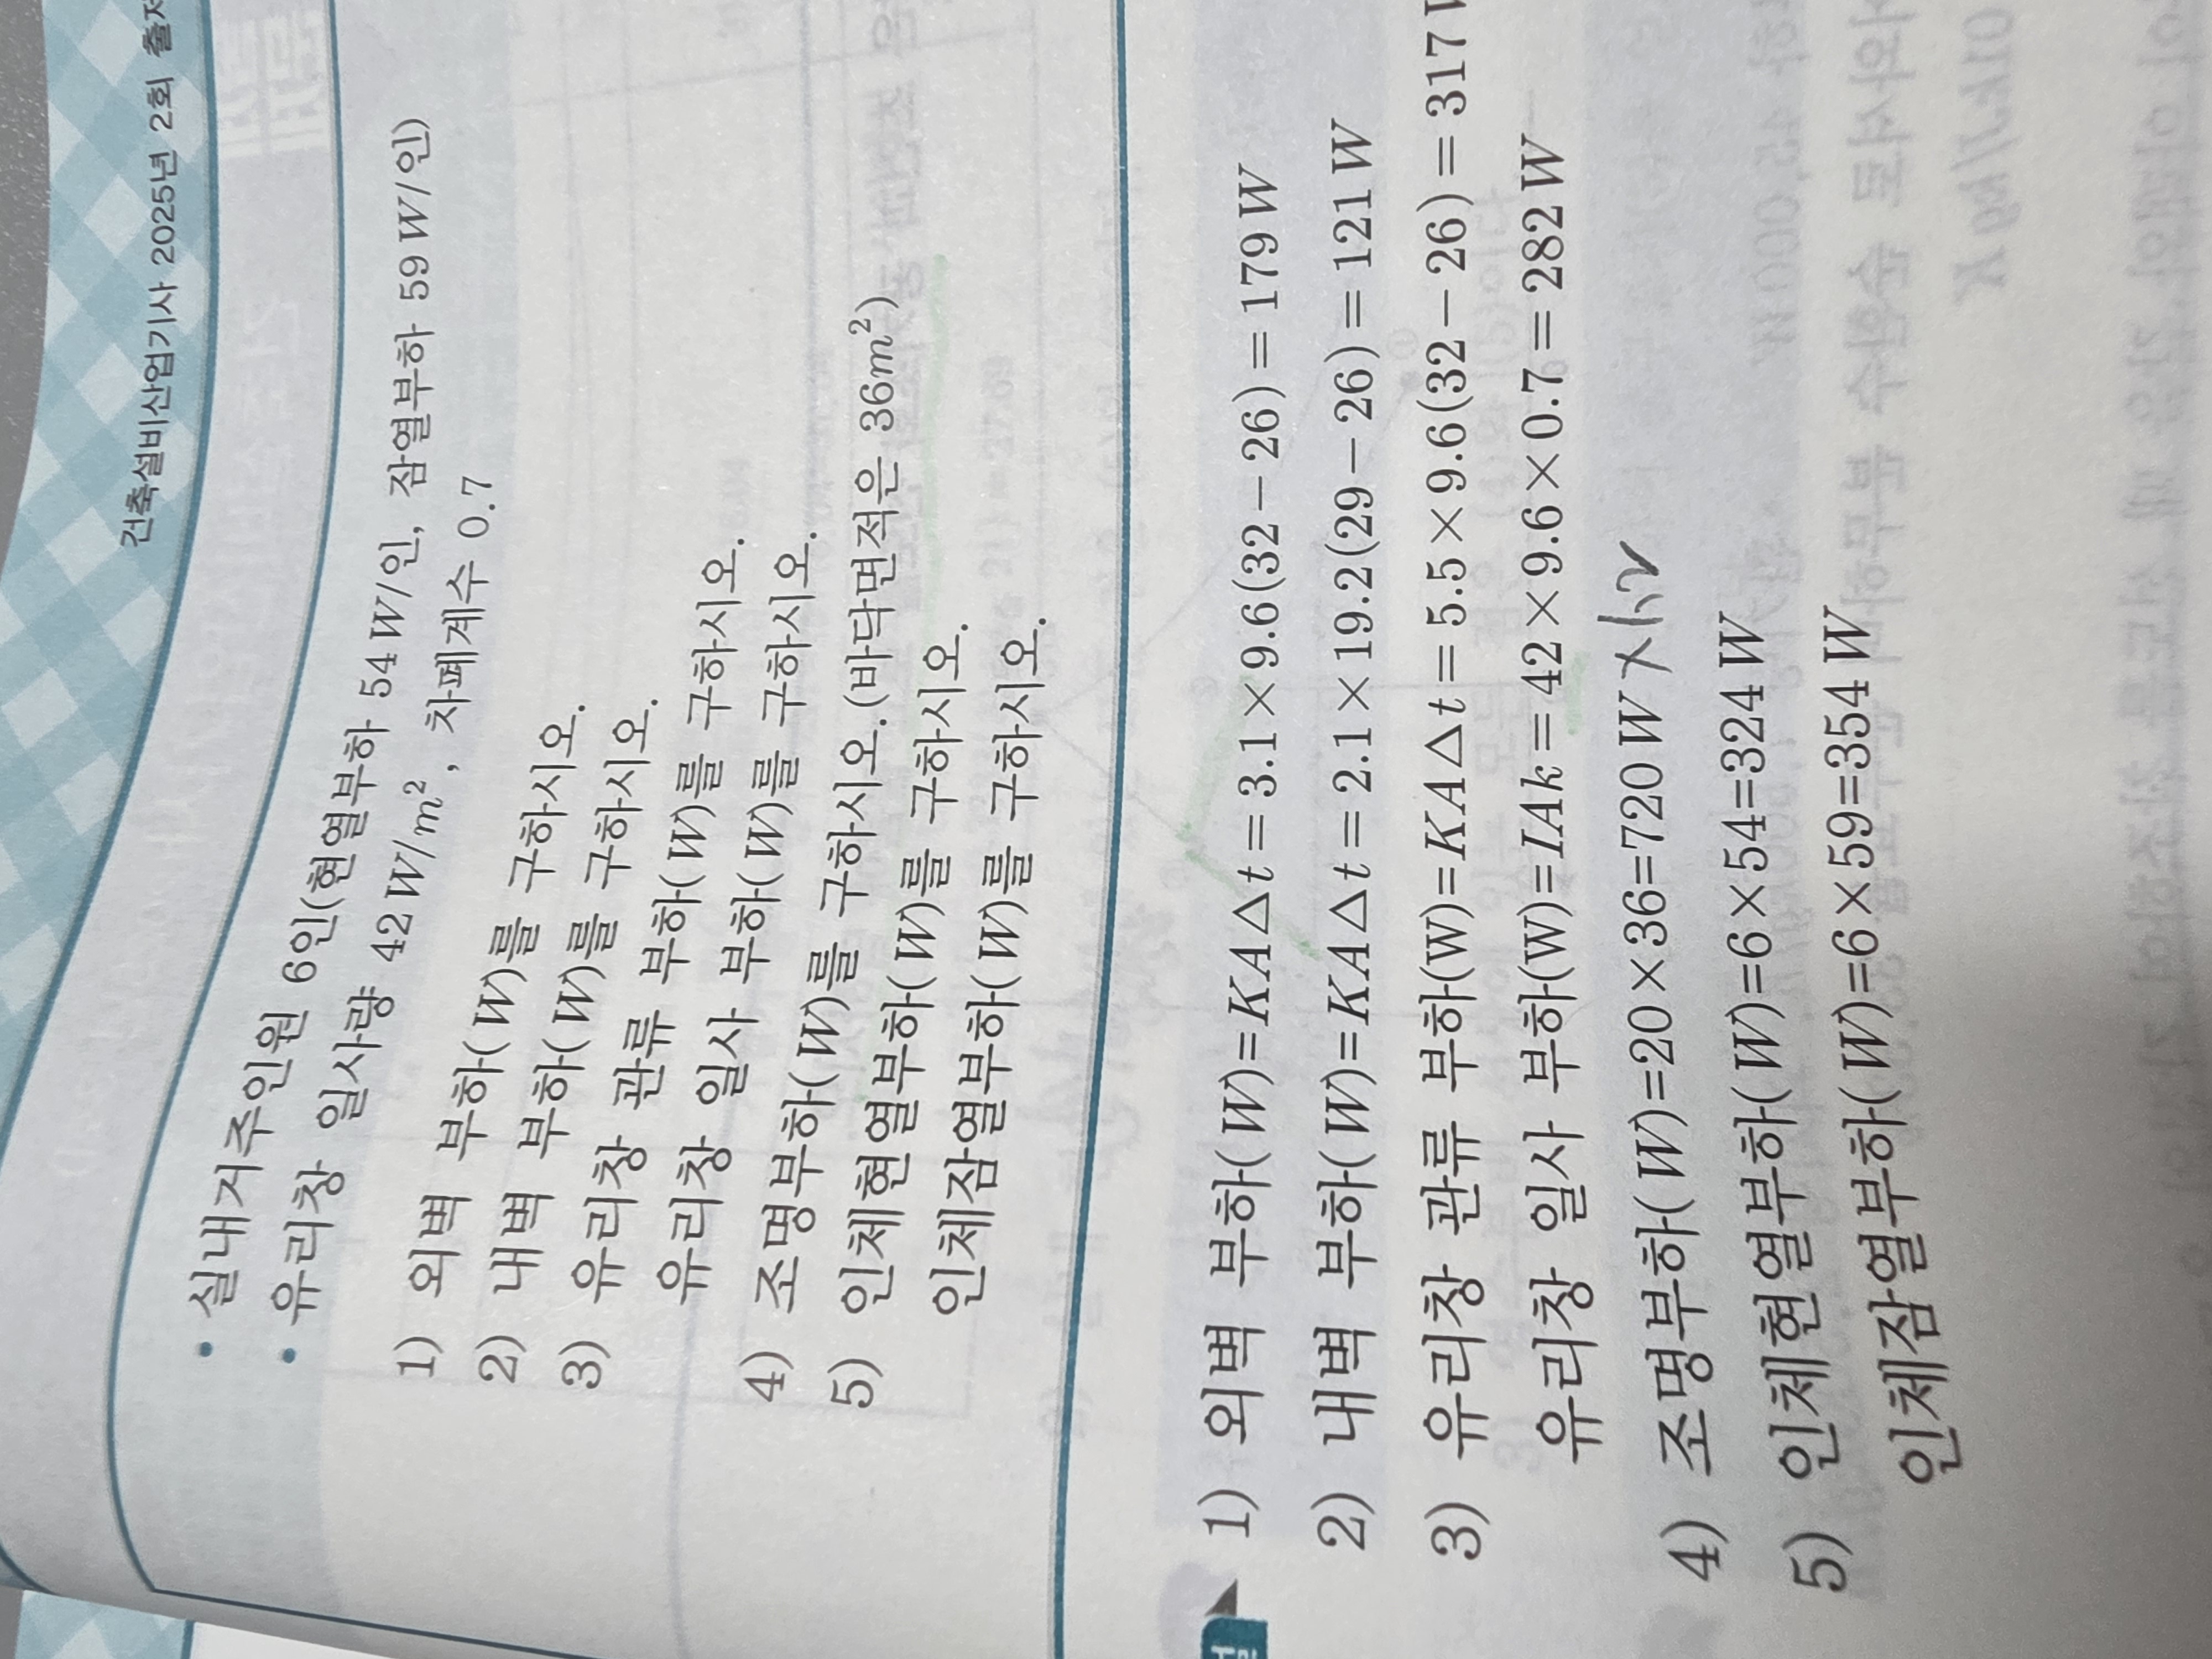 건축설비산업기사 2025년 2회
• 실내거주인원 6인(현열부하 54W/인, 잠열부하 59W/인)
• 유리창 일사량 42W/m², 차폐계수 0.7
1) 외벽 부하(W)를 구하시오.
2) 내벽 부하(W)를 구하시오.
3) 유리창 관류 부하(W)를 구하시오.
유리창 일사 부하(W)를 구하시오.
4) 조명부하(W)를 구하시오.(바닥면적은 36m²)
5) 인체현열부하(W)를 구하시오.
인체잠열부하(W)를 구하시오.
1) 외벽 부하(W)=KA△t=3.1×9.6(32-26)=179W
2) 내벽 부하(W)=KA△t=2.1×19.2(29-26)=121W
3) 유리창 관류 부하(W)=KA△t=5.5×9.6(32-26)=317W
유리창 일사 부하(W)=IAk=42×9.6×0.7=282W
4) 조명부하(W)=20×36=720W
5) 인체현열부하(W)=6×54=324W
인체잠열부하(W)=6×59=354W